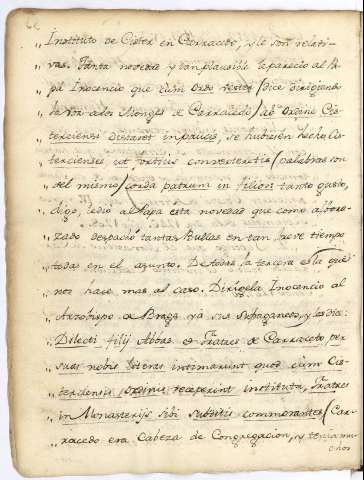 „ Instituto de Cister en Carracedo, y le son relati-
„ vas. Tanta novedad y tan plausible le parecio al Pa-
„ pa Inocencio que cum Ordo vester (dice dirigiendo-
„ se a los Monges de Carracedo) ab Ordine Cis-
„ terciensi discrepet in paucis, se hubiesen hecho Cis-
„ tercienses ut fortius converteretis (palabras son
„ del mismo) corda patrum in filios: tanto gusto,
„ digo, cedió al Papa esta novedad que como alboro-
„ zado despachó tantas Bullas en tan breve tiempo
„ todas en el asunto. De todas la tercera es la que
„ nos hace mas al caso. Dirigela Inocencio al
„ Arzobispo de Braga y a sus Subaganeos, y les dice:
„ Dilecti filij Abbas et Fratres de Carraceto per
„ suas nobis literas intimarunt quod cum Cis-
„ terciensis Ordinis receperint instituta, Fratres
„ in Monasterijs sibi subditis commorantes (Car-
„ racedo era Cabeza de Congregacion, y tenia mu-
chos